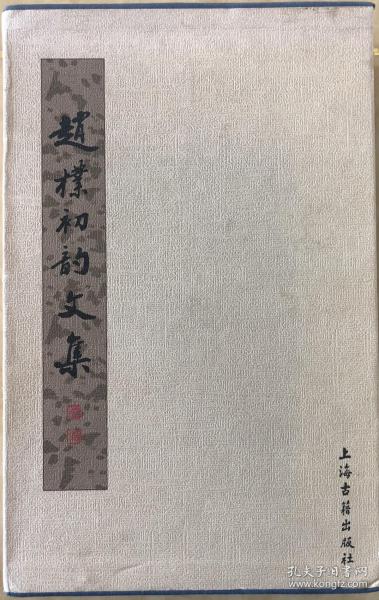 趙樸初韵文集
上海古籍出版社
孔夫子旧书网
www.kongfz.com